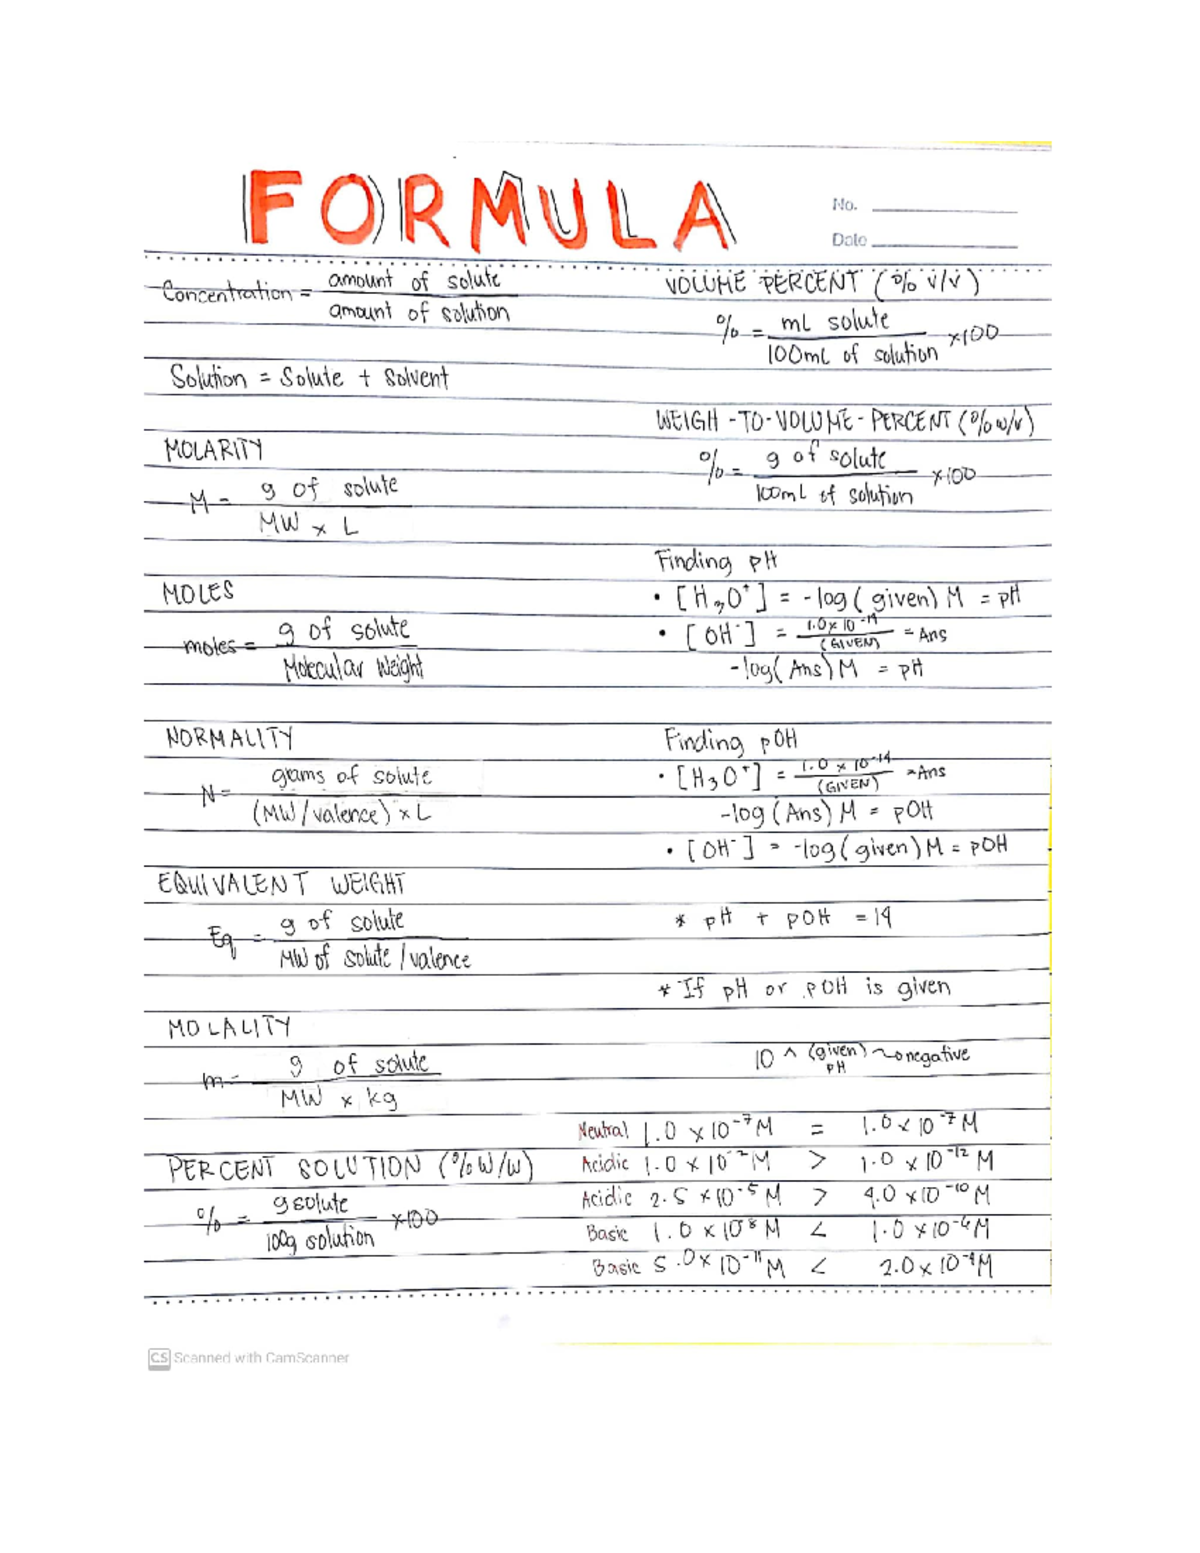 FORMULA
No.
Date
Concentration = amount of solute
amount of solution
Solution = Solute + Solvent
MOLARITY
M = g of solute
MW x L
MOLES
moles = g of solute
Molecular Weight
NORMALITY
N = grams of solute
(MW/valence) x L
EQUIVALENT WEIGHT
Eq = g of solute
MW of solute / valence
MOLALITY
m = g of solute
MW x kg
PERCENT SOLUTION (% W/W)
% = g solute x100
100g solution
VOLUME PERCENT (% v/v)
% = mL solute x100
100mL of solution
WEIGH-TO-VOLUME-PERCENT (% w/v)
% = g of solute x100
100mL of solution
Finding pH
• [H₃O⁺] = -log( given) M = pH
• [OH⁻] = 1.0x10⁻¹⁴ = Ans
(GIVEN)
-log( Ans) M = pH
Finding pOH
• [H₃O⁺] = 1.0 x 10⁻¹⁴ = Ans
(GIVEN)
-log (Ans) M = pOH
• [OH⁻] = -log( given) M = pOH
* pH + pOH = 14
* If pH or pOH is given
10 ^ (given) → negative
pH
Neutral 1.0 x10⁻⁷M = 1.0 x 10⁻⁷M
Acidic 1.0 x 10⁻²M > 1.0 x 10⁻¹² M
Acidic 2.5 x10⁻⁵ M > 4.0 x10⁻¹⁰ M
Basic 1.0 x 10⁻⁸ M < 1.0 x10⁻⁶M
Basic 5.0x 10⁻¹¹ M < 2.0x 10⁻⁴M
CS Scanned with CamScanner